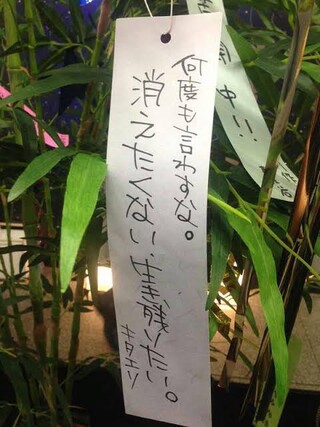 何度も言わすな。
消えたくない。生き残りたい。
キタエリ
中!!